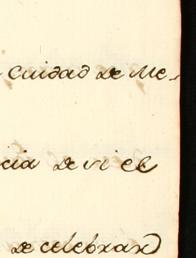 Cuidad de Me-
cia de vi el
de celebrar